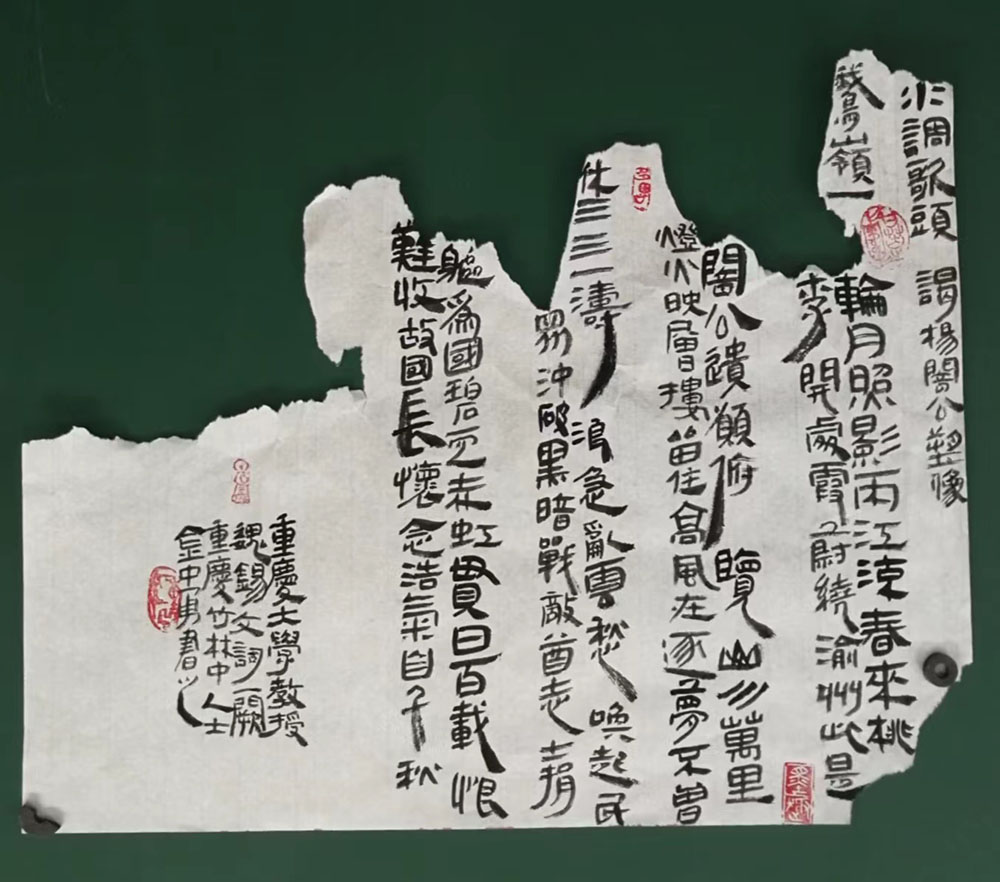 水調歌頭 謁楊闇公塑像
鵝嶺一輪月照影兩江涼春來桃
李開處霞蔚繞渝州此是
闇公遺願俯覽山川萬里
燈火映層樓留住高風在逐夢不曾
休三三一濤浪急亂雲愁喚起民
眾沖破黑暗戰敵酋志士捐
軀爲國碧血赤虹貫日百載恨
難收故國長懷念浩氣自千秋
重慶大學教授
魏錫文詞一闕
重慶竹林中人士
金中勇書